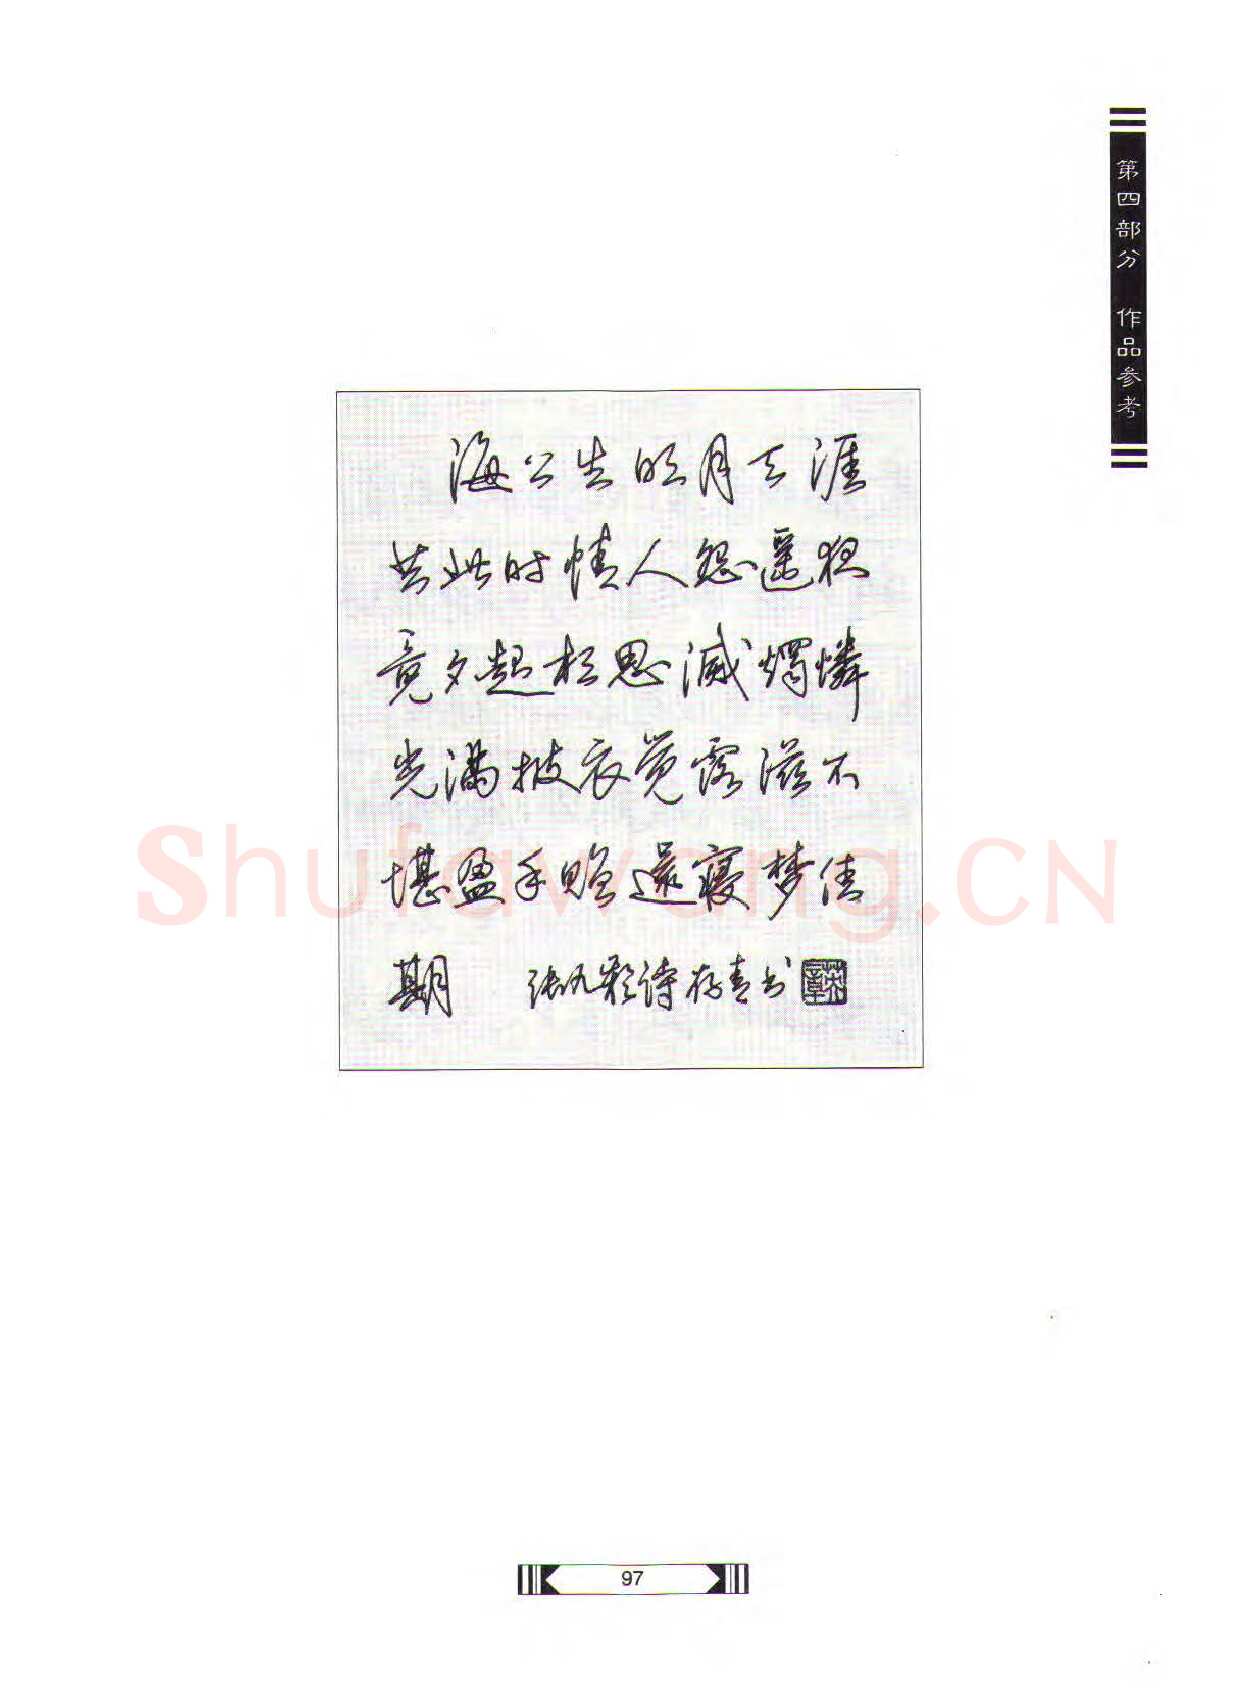 第四部分 作品参考
海上生明月天涯
共此时情人怨遥夜
竟夕起相思滅燭憐
光满披衣覚露滋不
堪盈手贈還寝梦佳
期 张九齡詩 存青书
Shufawang.CN
97